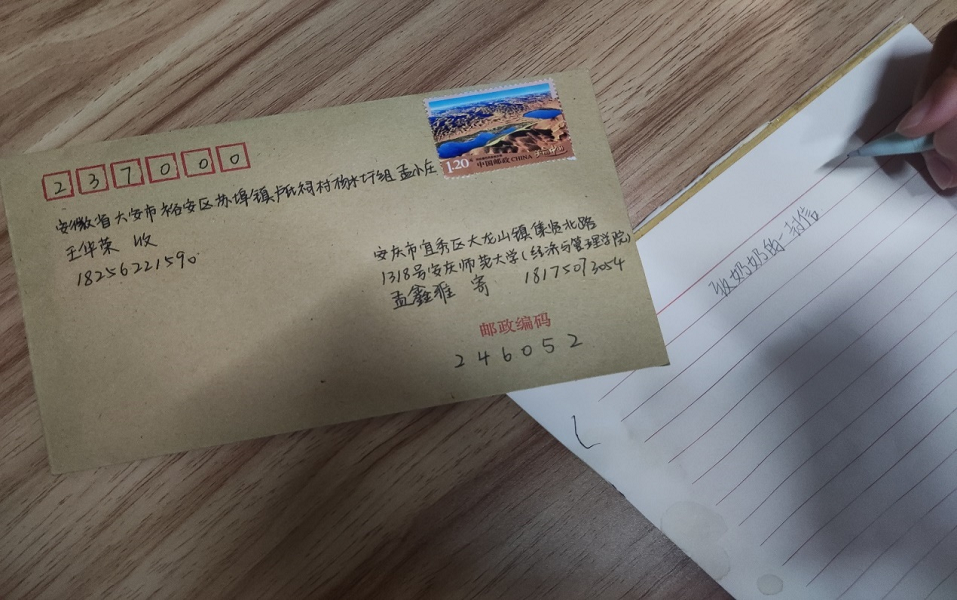 237000
安徽省六安市裕安区苏埠镇卢氏祠村杨木圩组孟小庄
王华荣 收
18256221590
1.20元
中国邮政 CHINA
安庆市宜秀区大龙山镇集贤北路
1318号安庆师范大学(经济与管理学院)
孟鑫雅 寄 18175073054
邮政编码
246052
致奶奶的一封信